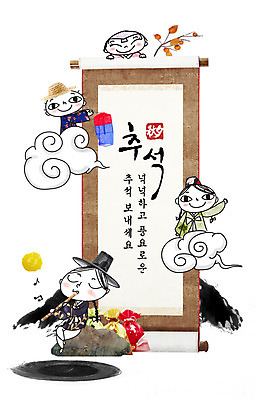 추석
넉넉하고 풍요로운
추석 보내세요